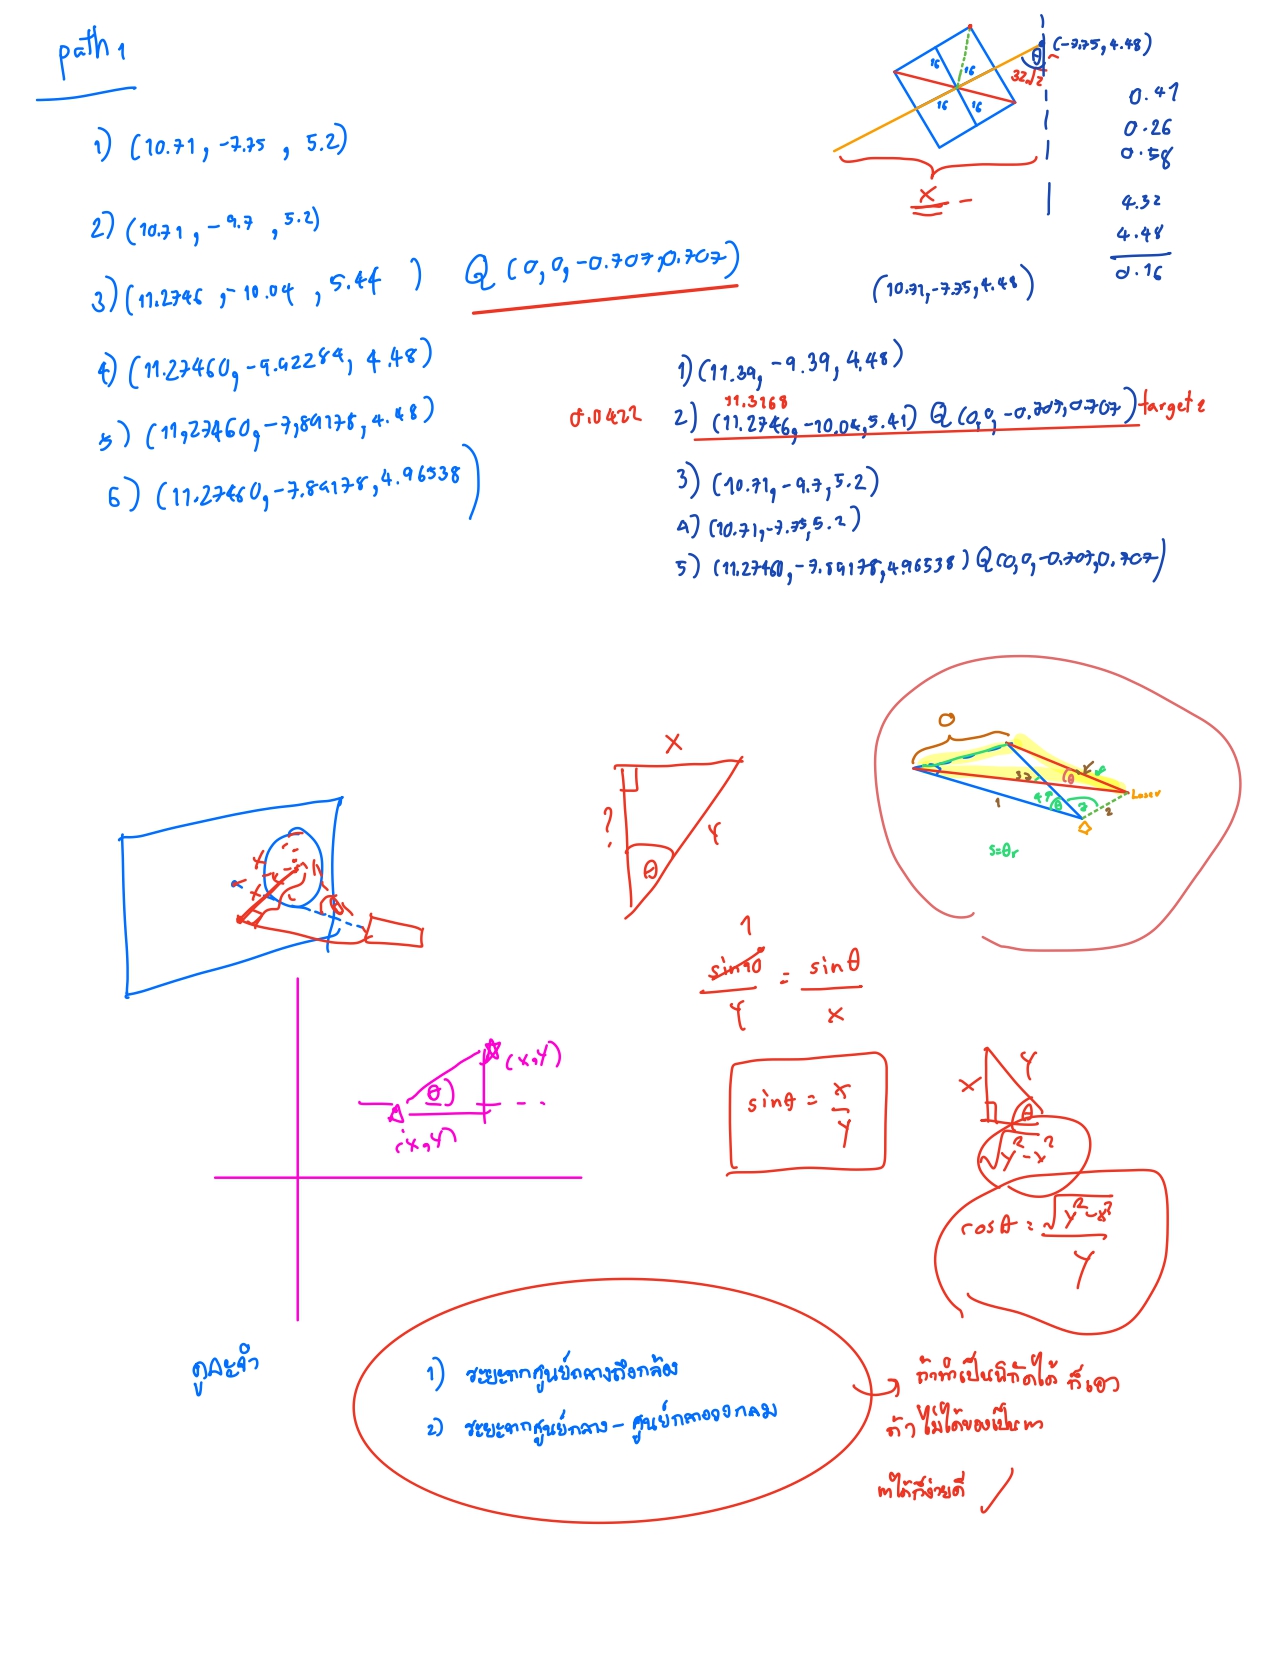 path 1
1) (10.71, -7.75, 5.2)
2) (10.71, -9.7, 5.2)
3) (11.2746, -10.04, 5.44) Q (0, 0, -0.707, 0.707)
4) (11.27460, -9.92284, 4.48)
5) (11.27460, -7.89178, 4.48)
6) (11.27460, -7.89178, 4.96538)
16 16
16 16
θ
32√2
(-7.75, 4.48)
x
0.41
0.26
0.58
4.32
4.48
0.16
(10.71, -7.75, 4.48)
1) (11.39, -9.39, 4.48)
11.3168
0.0422
2) (11.2746, -10.04, 5.41) Q (0, 0, -0.707, 0.707) target 2
3) (10.71, -9.7, 5.2)
4) (10.71, -7.75, 5.2)
5) (11.2746, -7.89178, 4.96538) Q (0, 0, -0.707, 0.707)
x
?
Y
θ
θ
Laser
1
2
S=θr
x
x
θ
1
sin90 = sinθ
Y x
sinθ = x
Y
x Y
θ
√Y²-x²
cosθ = √Y²-x²
Y
θ
(x,y)
(x,y)
ดูละจำ
1) ระยะจากศูนย์กลางถึงกล้อง
2) ระยะจากศูนย์กลาง - ศูนย์กลางวงกลม
ถ้าทำเป็นพิกัดได้ ก็เอา
ถ้าไม่ได้
หาได้ก็ง่ายดี